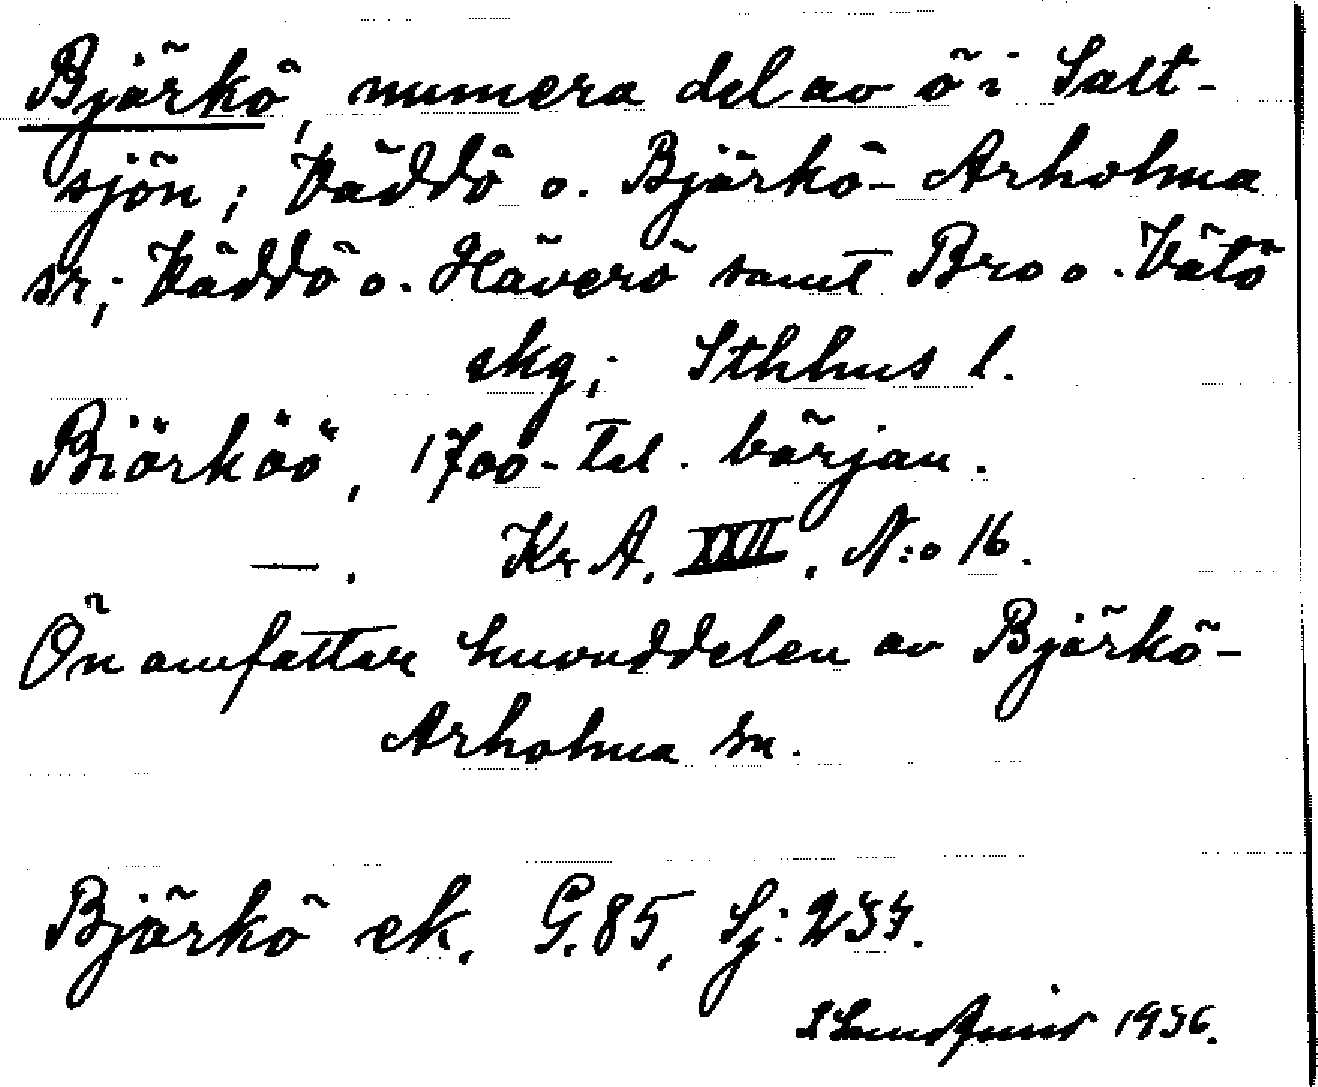 Bjärkö, numera del av ö i Salt-
sjön; Väddö o. Björkö-Arholma
sr; Väddö o. Häverö samt Bro o. Vätö
skg; Sthlms l.
Biörköö, 1700-tal. början.
—. Kr A. XXII. N:o 16.
Ön omfattar huvuddelen av Björkö-
Arholma sn.
Björkö ek. G. 85, Sj: 234.
1936.